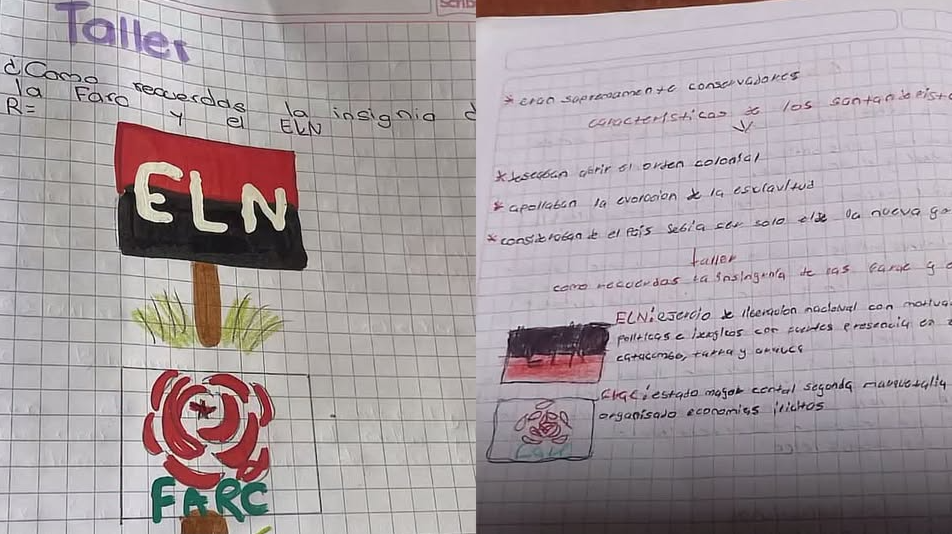 Taller
¿Como recuerdas la insignia d
la Farc y el ELN
R=
ELN
FARC
* eran supremamente conservadores
caracteristicas de los santanderist
* deseaban abrir el orden colonial
* apollaban la evoracion de la esclavitud
* considoraban de el pais debia ser solo el de la nueva g
taller
como recuerdas la insingenia de las farc y e
ELN: ejercio de liberacion nacional con motiva
politicas e
con fuertes presencia en
catacumbo, tarra y arauca
estado mayor cental segonda marquetalia
organisado economias ilichtos